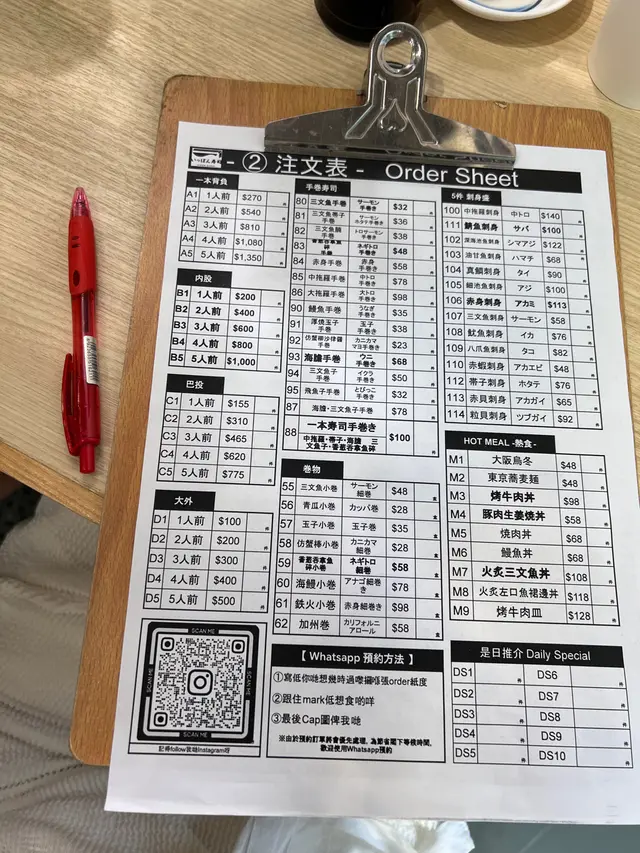 いっぽん寿司
- ② 注文表 - Order Sheet
一本背負
A1 1人前 $270 件
A2 2人前 $540 件
A3 3人前 $810 件
A4 4人前 $1,080 件
A5 5人前 $1,350 件
内股
B1 1人前 $200 件
B2 2人前 $400 件
B3 3人前 $600 件
B4 4人前 $800 件
B5 5人前 $1,000 件
巴投
C1 1人前 $155 件
C2 2人前 $310 件
C3 3人前 $465 件
C4 4人前 $620 件
C5 5人前 $775 件
大外
D1 1人前 $100 件
D2 2人前 $200 件
D3 3人前 $300 件
D4 4人前 $400 件
D5 5人前 $500 件
SCAN ME
SCAN ME
SCAN ME
SCAN ME
記得follow我哋Instagram呀
手巻寿司
80 三文魚手巻 サーモン手巻き $32 件
81 三文魚帶子手巻 サーモンホタテ手巻き $36 件
82 三文魚腩手巻 トロサーモン手巻き $38 件
83 香蔥吞拿魚碎手巻 ネギトロ手巻き $48 件
84 赤身手巻 赤身手巻き $58 件
85 中拖羅手巻 中トロ手巻き $78 件
86 大拖羅手巻 大トロ手巻き $98 件
90 鰻魚手巻 うなぎ手巻き $35 件
91 厚燒玉子手巻 玉子手巻き $38 件
92 仿蟹柳沙律醬手巻 カニカママヨ手巻き $23 件
93 海膽手巻 ウニ手巻き $68 件
94 三文魚子手巻 イクラ手巻き $50 件
95 飛魚子手巻 とびっこ手巻き $32 件
87 海膽·三文魚子手巻 $78 件
88 一本寿司手巻き
中拖羅·帶子·海膽 三文魚子·香蔥吞拿魚碎 $100 件
巻物
55 三文魚小巻 サーモン細巻 $48 食
56 青瓜小巻 カッパ巻 $28 食
57 玉子小巻 玉子巻 $35 食
58 仿蟹棒小巻 カニカマ細巻 $28 食
59 香蔥吞拿魚碎小巻 ネギトロ細巻 $58 食
60 海鰻小巻 アナゴ細巻き $78 食
61 鉄火小巻 赤身細巻き $98 食
62 加州小巻 カリフォルニアロール $58 食
【 Whatsapp 預約方法 】
①寫低你哋想幾時過嚟攞喺張order紙度
②跟住mark低想食啲咩
③最後Cap圖俾我哋
※由於預約訂單將會優先處理, 為節省閣下等候時間,
歡迎使用Whatsapp預約
5件 刺身盛
100 中拖羅刺身 中トロ $140 件
111 鯖魚刺身 サバ $100 件
102 深海池魚刺身 シマアジ $122 件
103 油甘魚刺身 ハマチ $68 件
104 真鯛刺身 タイ $90 件
105 細池魚刺身 アジ $100 件
106 赤身刺身 アカミ $113 件
107 三文魚刺身 サーモン $58 件
108 魷魚刺身 イカ $76 件
109 八爪魚刺身 タコ $82 件
110 赤蝦刺身 アカエビ $48 件
112 帶子刺身 ホタテ $76 件
113 赤貝刺身 アカガイ $65 件
114 粒貝刺身 ツブガイ $92 件
HOT MEAL -熱食-
M1 大阪烏冬 $48 件
M2 東京蕎麦麺 $48 件
M3 烤牛肉丼 $98 件
M4 豚肉生姜燒丼 $58 件
M5 燒肉丼 $68 件
M6 鰻魚丼 $68 件
M7 火炙三文魚丼 $108 件
M8 火炙左口魚裙邊丼 $118 件
M9 烤牛肉皿 $128 件
是日推介 Daily Special
DS1 件 DS6 件
DS2 件 DS7 件
DS3 件 DS8 件
DS4 件 DS9 件
DS5 件 DS10 件